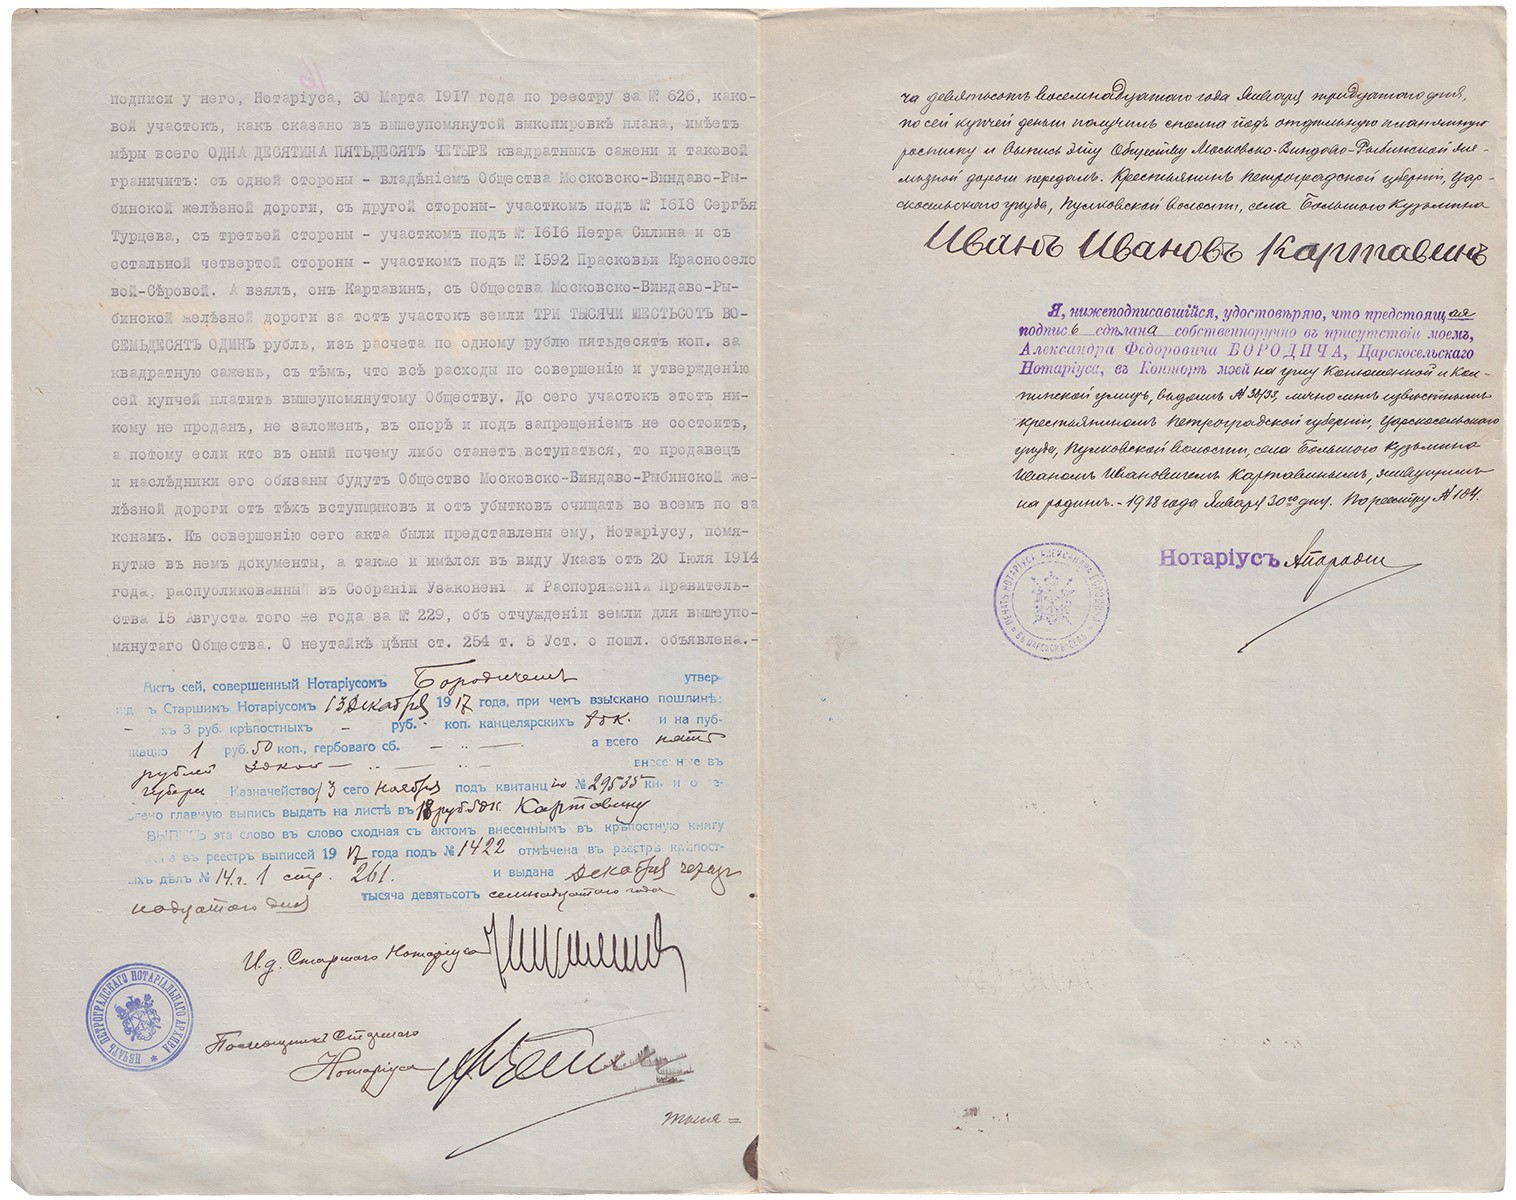 подписи у него, Нотаріуса, 30 Марта 1917 года по реестру за № 626, како-
вой участокъ, какъ сказано въ вышеупомянутой выкопировкѣ плана, имѣетъ
мѣры всего ОДНА ДЕСЯТИНА ПЯТЬДЕСЯТЪ ЧЕТЫРЕ квадратныхъ сажени и таковой
граничитъ: съ одной стороны - владѣніемъ Общества Московско-Виндаво-Ры-
бинской желѣзной дороги, съ другой стороны- участкомъ подъ № 1618 Сергѣя
Турцева, съ третьей стороны - участкомъ подъ № 1616 Петра Силина и съ
остальной четвертой стороны - участкомъ подъ № 1592 Прасковьи Красносело
вой-Сѣровой. А взялъ, онъ Картавинъ, съ Общества Московско-Виндаво-Ры-
бинской желѣзной дороги за тотъ участокъ земли ТРИ ТЫСЯЧИ ШЕСТЬСОТЪ ВО-
СЕМЬДЕСЯТЪ ОДИНЪ рубль, изъ расчета по одному рублю пятьдесятъ коп. за
квадратную сажень, съ тѣмъ, что всѣ расходы по совершенію и утвержденію
сей купчей платить вышеупомянутому Обществу. До сего участокъ этотъ ни-
кому не проданъ, не заложенъ, въ спорѣ и подъ запрещеніемъ не состоитъ,
а потому если кто въ оный почему либо станетъ вступаться, то продавецъ
и наслѣдники его обязаны будутъ Общество Московско-Виндаво-Рыбинской же-
лѣзной дороги отъ тѣхъ вступщиковъ и отъ убытковъ очищать во всемъ по за
конамъ. Къ совершенію сего акта были представлены ему, Нотаріусу, помя-
нутые въ немъ документы, а также и имѣлся въ виду Указъ отъ 20 Іюля 1914
года, распубликованный въ Собраніи Узаконені и Распоряженіи Правитель-
ства 15 Августа того же года за № 229, объ отчужденіи земли для вышеупо-
мянутаго Общества. О неутайкѣ цѣны ст. 254 т. 5 Уст. о пошл. объявлена.-
Актъ сей, совершенный Нотаріусомъ Бородичемъ утвер-
ъ Старшимъ Нотаріусомъ 13 Декабря 1917 года, при чемъ взыскано пошлинъ:
- хъ 3 руб. крѣпостныхъ - руб. коп. канцелярскихъ и на пуб-
кацію 1 руб. 50 коп., гербоваго сб. а всего пять
рублей внесенные въ
Губерн Казначейство 13 сего ноября подъ квитанцію № 29535
главную выпись выдать на листѣ въ 18 руб Картавину
ВЫПИСЬ эта слово въ слово сходная съ актомъ внесеннымъ въ крѣпостную книгу
въ реестръ выписей 1917 года подъ № 1422 отмѣчена въ реестрѣ крѣпост-
ыхъ дѣлъ № 14. г. 1 стр. 261. и выдана Декабря
надцатого дня тысяча девятьсот семнадцатого года
И.д. Старшаго Нотаріуса
ПЕЧАТЬ ПЕТРОГРАДСКАГО НОТАРІАЛЬНАГО АРХИВА
Помощникъ Старшаго
Нотаріуса
тыся=
ча девятьсотъ восемнадцатаго года Января тридцатаго дня,
по сей купчей деньги получилъ сполна подъ отдѣльную
росписку и выпись эту Обществу Московско-Виндово-Рыбинской же-
лѣзной дороги передалъ. Крестьянинъ Петроградской губерніи, Цар-
скосельскаго уѣзда, Пулковской волости, села Большого Кузьмина
Иванъ Ивановъ Картавинъ
Я, нижеподписавшійся, удостовѣряю, что предстоящая
подпись сдѣлана собственноручно въ присутствіи моемъ,
Александра Ѳедоровича БОРОДИЧА, Царскосельскаго
Нотаріуса, въ Конторѣ моей на углу Конюшенной и Кол-
пинской улицъ, въ домѣ № 38/33, лично мнѣ извѣстнымъ
крестьяниномъ Петроградской губерніи, Царскосельскаго
уѣзда, Пулковской волости, села Большого Кузьмина
Иваномъ Ивановичемъ Картавинымъ, живущимъ
на родинѣ.- 1918 года Января 30го дня. По реестру № 184.
Нотаріусъ АБородич
ПЕЧАТЬ НОТАРІУСА АЛЕКСАНДРА БОРОДИЧА ВЪ ЦАРСКОМЪ-СЕЛѢ